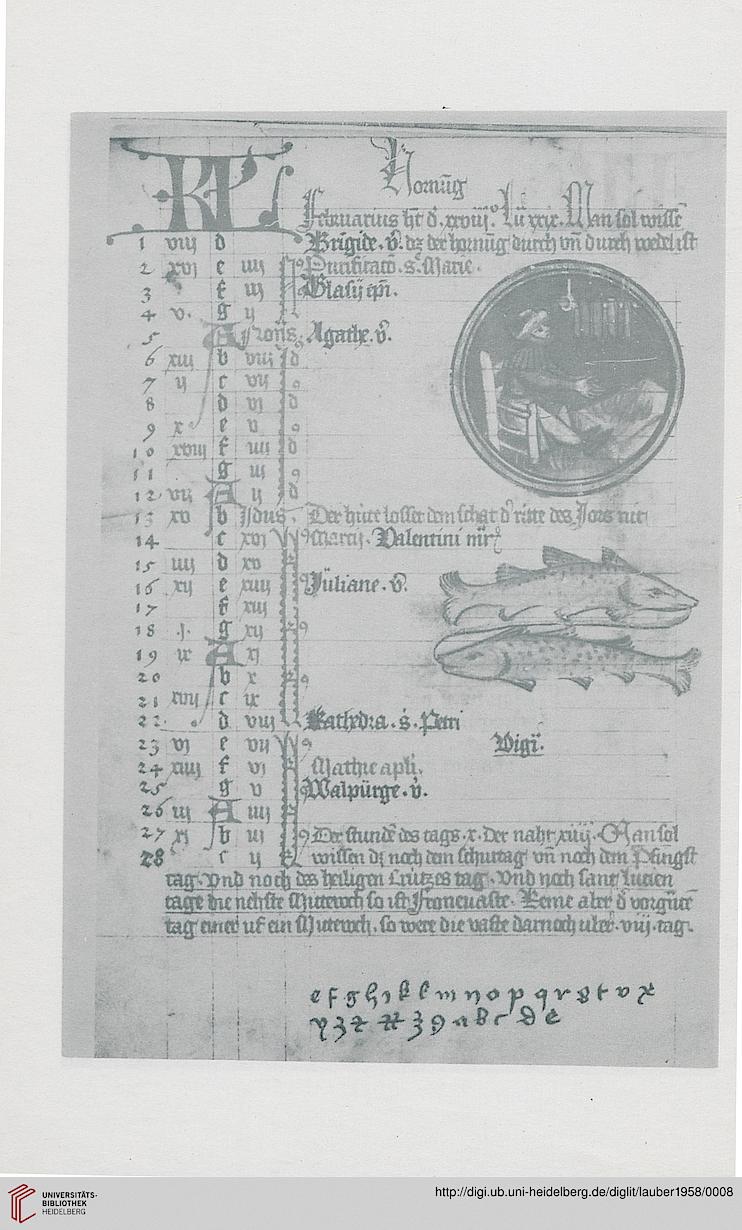 KL Hornu̅g
Februarius ht d' xxviij. Lu̅ xxix. Man sol wisse̅
1 viij d Brigide. v̊. dz der hornu̅g durch vn̅ durch wedel ist
2 xvj e iiij Purificatō. s. Marie.
3 f iij Blasij ep̅i.
4 v. g ij
5 A Nōns Agathe. v̊.
6 xiij b viij d
7 ij c vij 9
8 d vj d
9 x e v 9
10 xviij f iiij d
11 g iij 9
12 vij A ij d
13 xv b Jdus. Der hirte losset dem schat d' ritte des Jors nit
14 c xvj Marcij. Valentini m̅r̅
15 iiij d xv
16 xij e xiiij Juliane. v̊.
17 f xiij
18 .j. g xij 9
19 ix A xj
20 b x 9
21 xvij c ix
22 d viij Kathedra. s. Petri
23 vj e vij 9 Vigi̅.
24 xiiij f vj Mathie apl̅i.
25 g v Walpurge. v̊.
26 iij A iiij
27 xj b iij 9 Der stunde̅ des tags. x. der naht xiiij. Man sol
28 c ij wissen dz noch dem schurtag vn̅ noch dem Pfingst
tag. Vnd noch des heiligen Crützes tag. Vnd noch sant lucien
tage die nehste Mittewoch so ist Froneuaste. Keme aber d' vorgn̅te̅
tag einer uf ein Mittewch. so were die vaste darnoch uber. viij. tag.
e f g h i k l m n o p q r s t v x
y z z a b c d e
UNIVERSITÄTS-
BIBLIOTHEK
HEIDELBERG
http://digi.ub.uni-heidelberg.de/diglit/lauber1958/0008